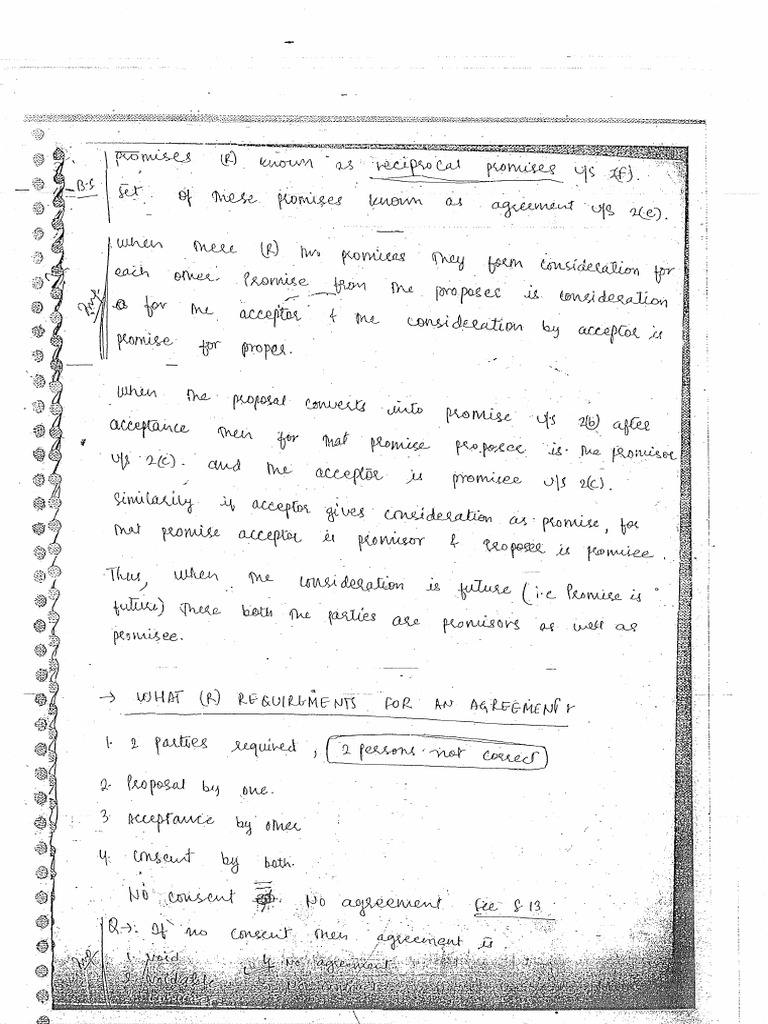 promises (R) known as reciprocal promises u/s 2(f).
B.S
set of these promises known as agreement u/s 2(e).
when there (R) two promises they form consideration for
each other. Promise from the proposer is consideration
for the acceptor & the consideration by acceptor is
promise for proper.
when the proposal converts into promise u/s 2(b) after
acceptance then for that promise proposer is the promisor
u/s 2(c). and the acceptor is promisee u/s 2(c).
similarly if acceptor gives consideration as promise, for
that promise acceptor is promisor & proposer is promisee.
Thus, when the consideration is future (i.e Promise is
future) there both the parties are promisors as well as
promisee.
→ WHAT (R) REQUIREMENTS FOR AN AGREEMENT
1. 2 parties required, 2 persons not correct
2. Proposal by one.
3. acceptance by other
4. consent by both.
No consent = No agreement See S 13
Q→: If no consent then agreement is
1. void 4. no agreement
2. voidable